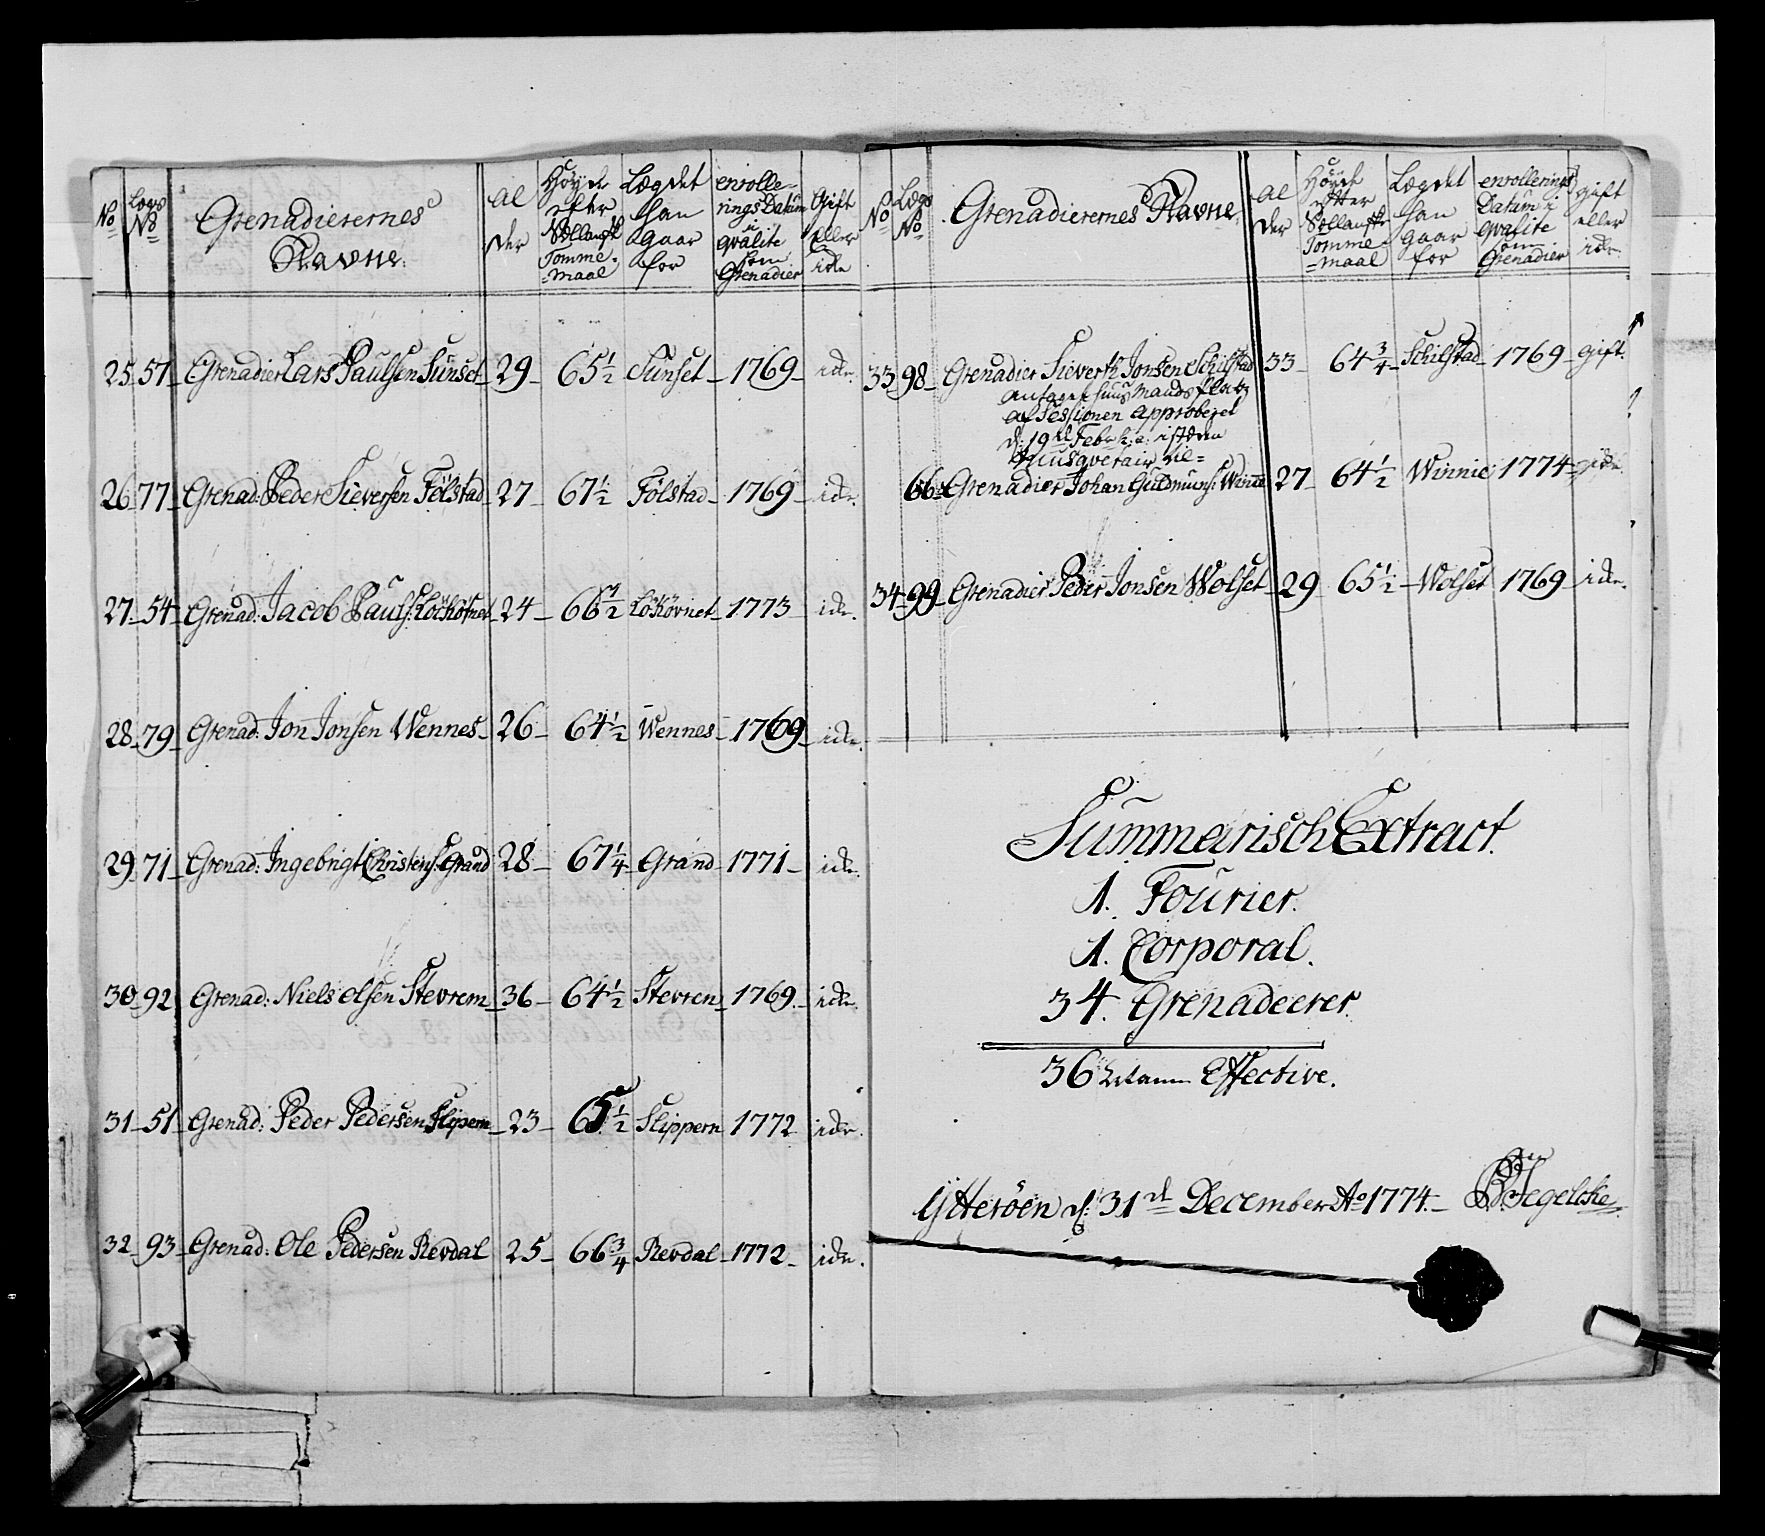 No Lægs No Grenadierernes Navne. Alder Höÿde efter Tommemaal Lægdet han gaar for enrollerings Datum i qvalite som Grenadier Gift eller icke
25 57 Grenadier Lars Paulsen Sunset 29 65½ Sunset 1769 icke.
26 77 Grenad: Peder Sieversen Fölstad 27 67½ Fölstad 1769 icke.
27 54 Grenad: Jacob Pauls: 24 66½ Lökövnet 1773 icke.
28 79 Grenad: Jon Jonsen Wennes 26 64½ Wennes 1769 icke.
29 71 Grenad: Ingebrigt Christens: Grand 28 67¼ Grand 1771 icke.
30 92 Grenad: Niels Olsen Stevrem 36 64½ Stevren 1769 icke.
31 51 Grenad: Peder Pedersen Slipern 23 65½ Slippern 1772 icke.
32 93 Grenad: Ole Pedersen Revdal 25 66¾ Revdal 1772 icke.
No Lægs No Grenadierernes Navne. Alder Höÿde efter Tommemaal Lægdet han gaar for enrollerings Datum i qvalite som Grenadier gift eller icke.
33 98 Grenadier Siever Jonsen Schilstad 33 64¾ Schilstad 1769 gift.
af Sessionen approberet
d: 19de Febr: h: a: isteden
Musqvetair til=
66 Grenadier Johan Guldmuns: Winnie 27 64½ Winnie 1774 icke
34 99 Grenadier Peder Jonsen Wolset 29 65½ Wolset 1769 icke.
Summarisch Extract.
1. Fourier.
1. Corporal.
34. Grenadeerer.
36 Effective.
Ÿtteröen d: 31de December Ao 1774.